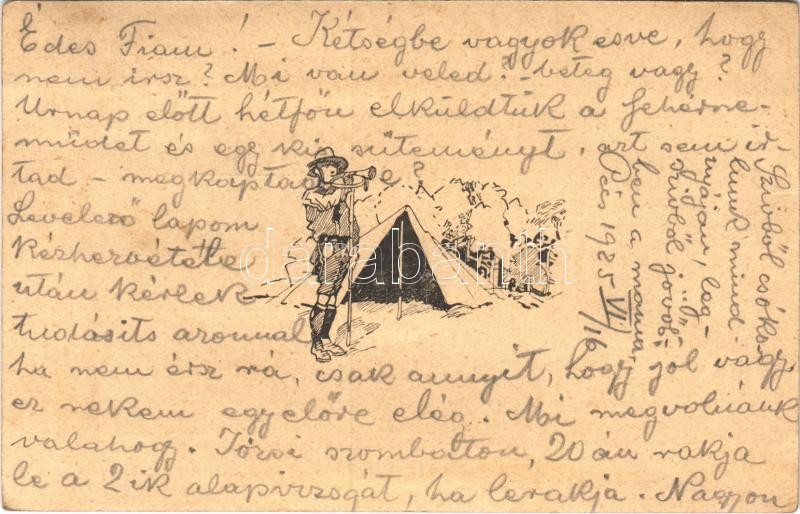 Édes Fiam! – Kétségbe vagyok esve, hogy
nem irsz? Mi van veled? – beteg vagy?
Úrnap előtt hétfőn elküldtük a fehérne-
müdet és egy kis süteményt, azt sem ir-
tad – megkaptad e?
Levelező lapom
kézhezvétele
után kérlek
tudásits azonnal
ha nem érsz rá, csak annyit, hogy jól vagy,
ez nekem egyelőre elég. Mi megvolnánk
valahogy. Józsi szombaton, 20 án rakja
le a 2 ik alapvizsgát, ha lerakja. Nagyon
Szivből csóko-
lunk mind-
nyájan, leg-
szivből jövőb-
ben a mama.
Pécs 1925 VI/16
darabanth